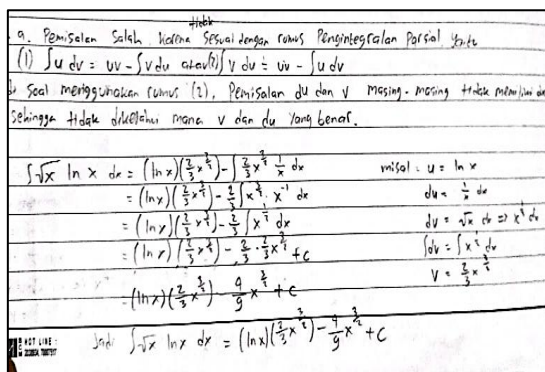 tidak
a. Pemisalan Salah, karena Sesuai dengan rumus Pengintegralan Parsial yaitu
(1) ∫u dv = uv - ∫v du atau (2) ∫v du = uv - ∫u dv
Soal menggunakan rumus (2), Pemisalan du dan v masing-masing tidak memiliki
sehingga tidak diketahui mana v dan du yang benar.
∫√x ln x dx = (ln x)(2/3 x^{3/2}) - ∫ 2/3 x^{3/2} 1/x dx
= (ln x)(2/3 x^{3/2}) - 2/3 ∫ x^{3/2} . x^{-1} dx
= (ln x)(2/3 x^{3/2}) - 2/3 ∫ x^{1/2} dx
= (ln x)(2/3 x^{3/2}) - 2/3 . 2/3 x^{3/2} + c
= (ln x)(2/3 x^{3/2}) - 4/9 x^{3/2} + c
Jadi ∫√x ln x dx = (ln x)(2/3 x^{3/2}) - 4/9 x^{3/2} + c
misal : u = ln x
du = 1/x dx
dv = √x dx => x^{1/2} dx
∫dv = ∫x^{1/2} dx
v = 2/3 x^{3/2}
HOT LINE :